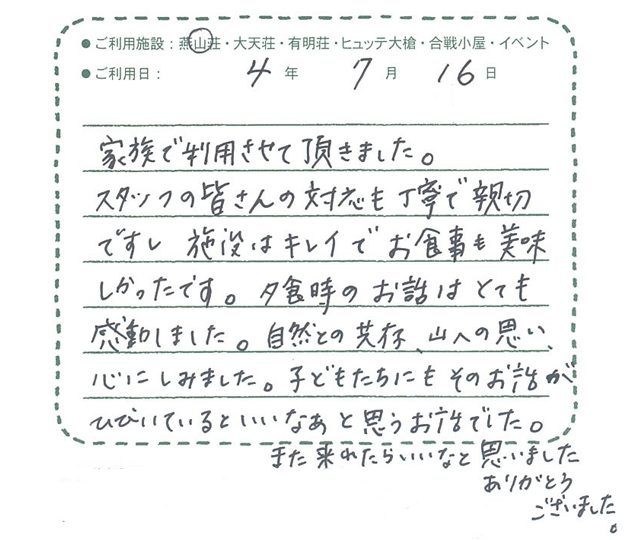 ● ご利用施設：燕山荘・大天荘・有明荘・ヒュッテ大槍・合戦小屋・イベント
● ご利用日： 4 年 7 月 16 日
家族で利用させて頂きました。
スタッフの皆さんの対応も丁寧で親切
ですし 施設はキレイで お食事も美味
しかったです。夕食時のお話はとても
感動しました。自然との共存、山への思い、
心にしみました。子どもたちにもそのお話が
ひびいているといいなぁと思うお話でした。
また来れたらいいなと思いました
ありがとう
ございました。